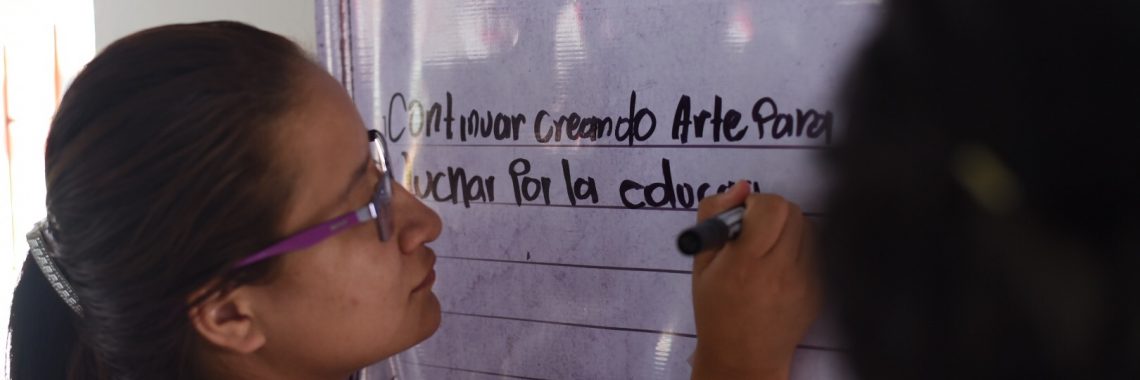 Continuar creando Arte Para
luchar Por la educa